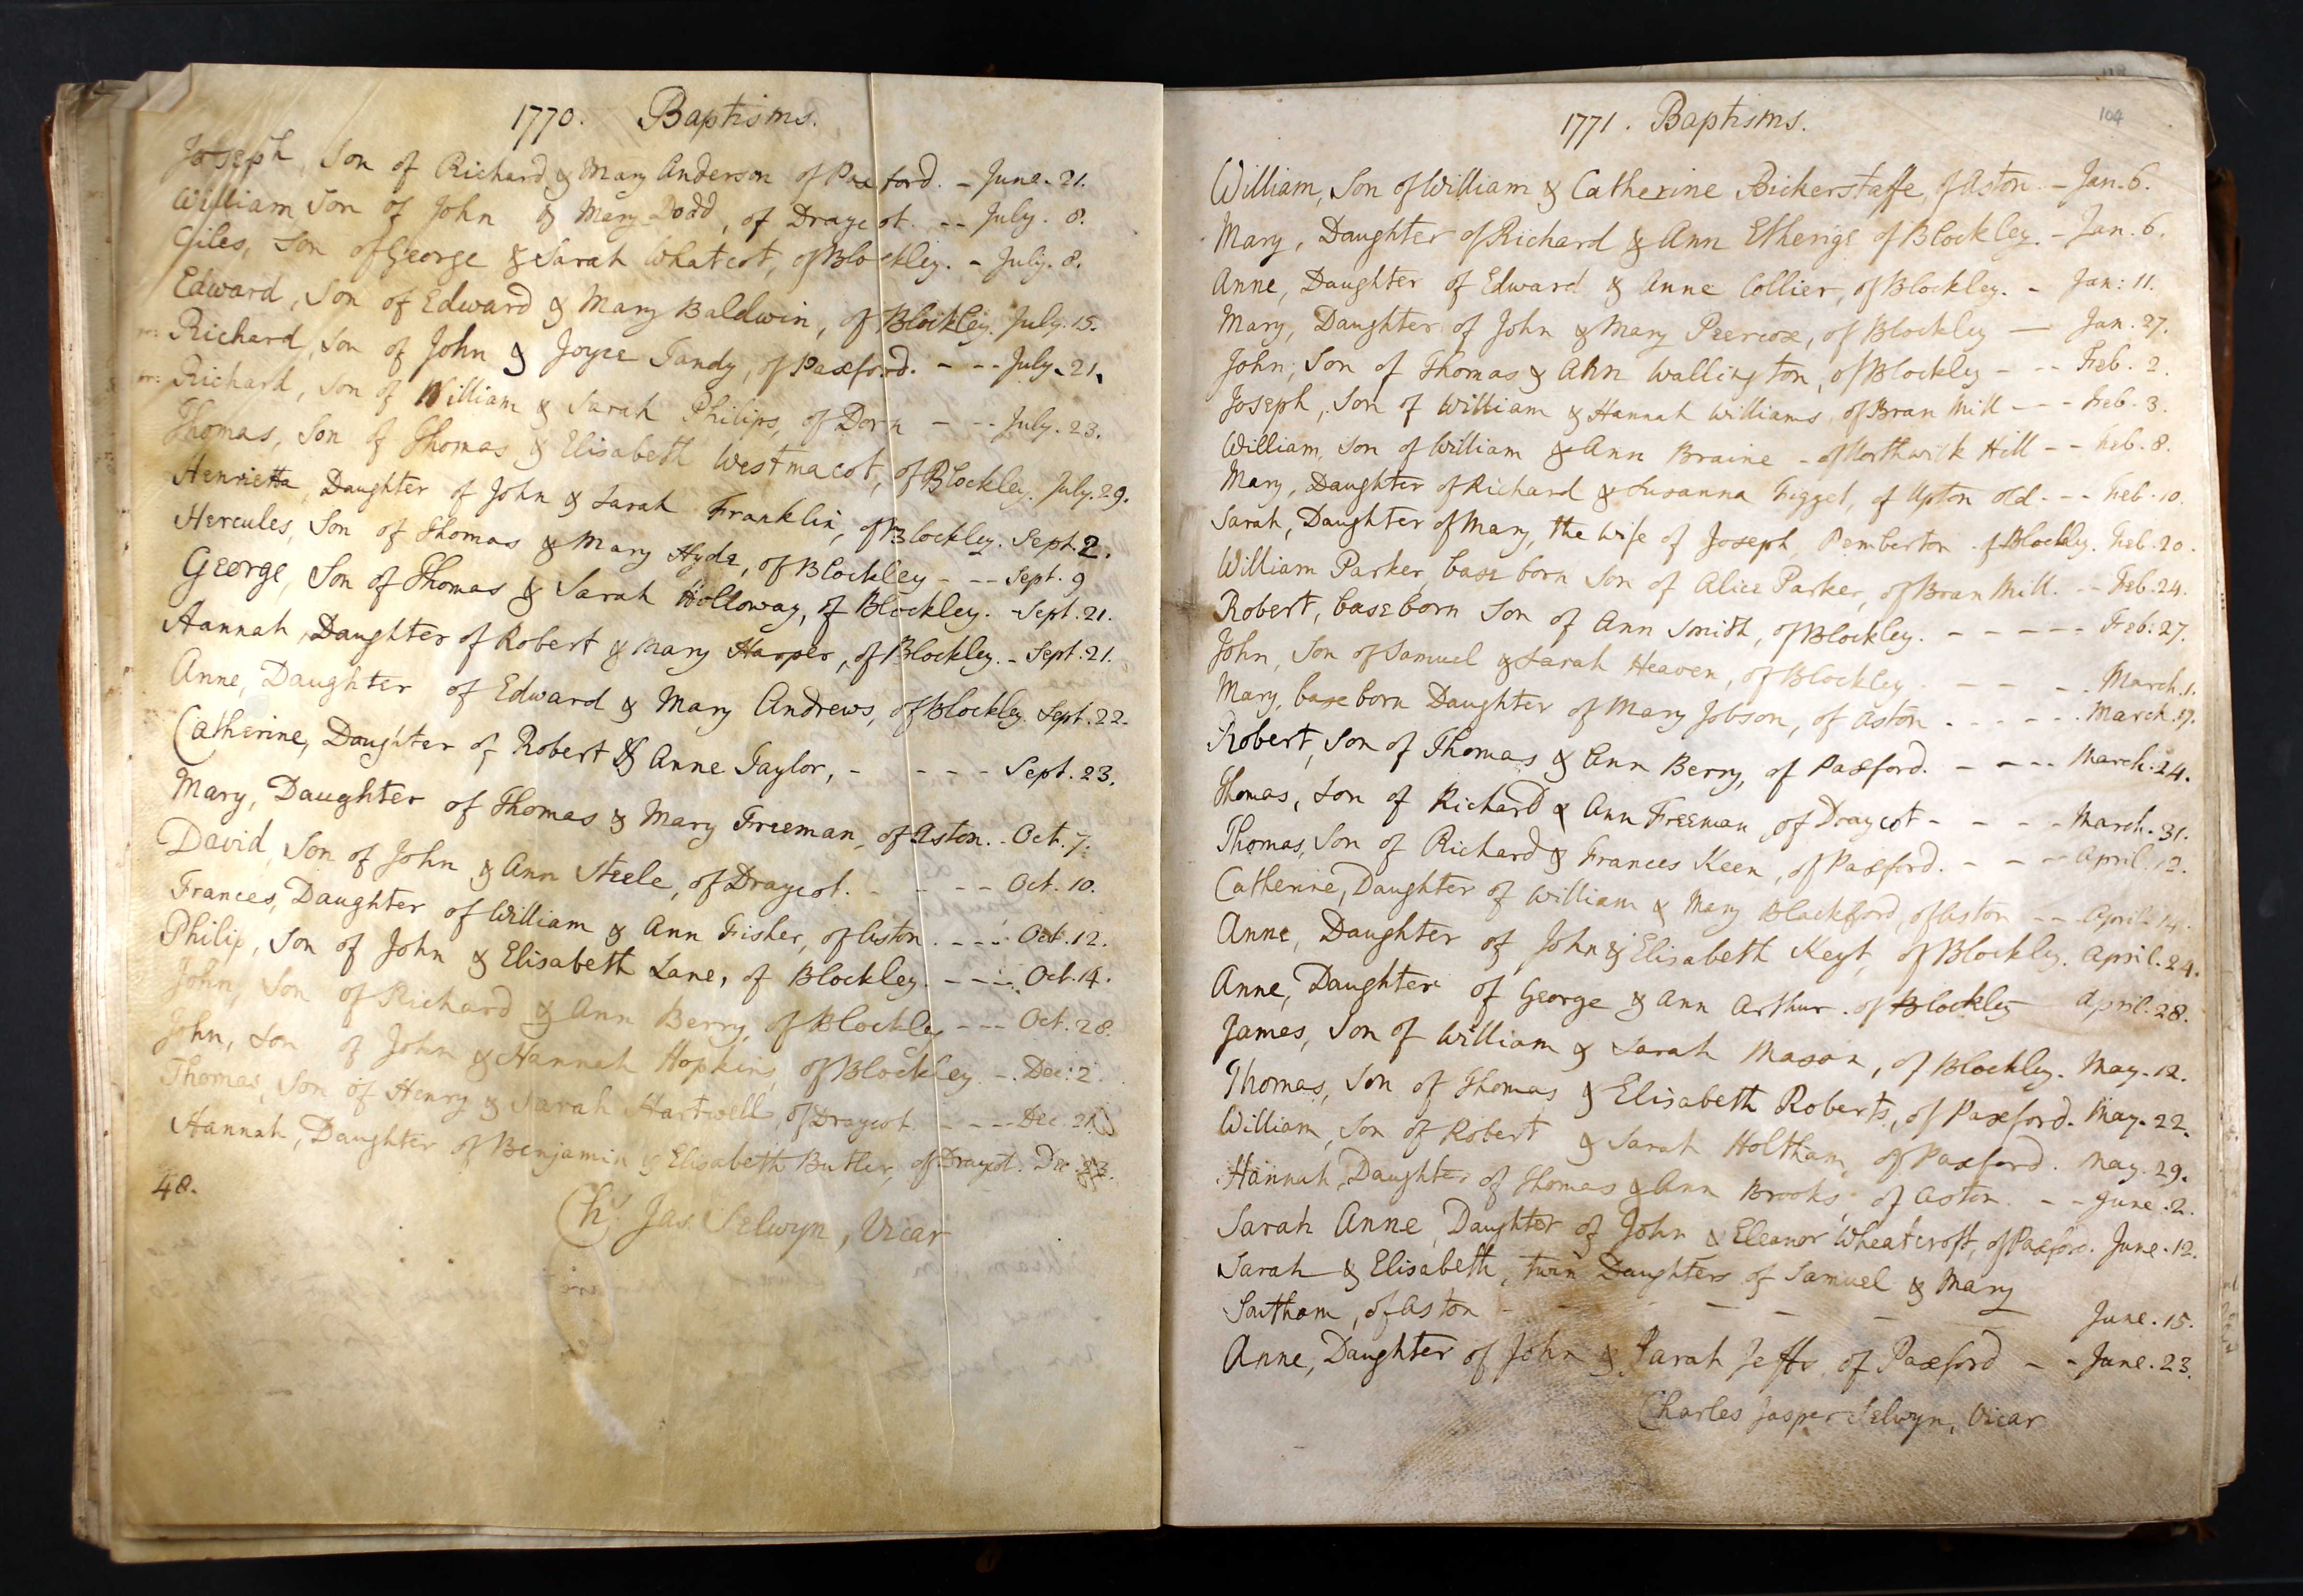 1770. Baptisms.
Joseph, Son of Richard & Mary Anderson of Paxford. - June. 21.
William Son of John & Mary Dodd, of Draycot. -- July. 8.
Giles, Son of George & Sarah Whatcot, of Blockley. - July. 8.
Edward, Son of Edward & Mary Baldwin, of Blockley. July. 15.
Richard, Son of John & Joyce Tandy, of Paxford. - -- July. 21.
Richard, Son of William & Sarah Philips, of Dorn - -- July. 23.
Thomas, Son of Thomas & Elisabeth Westmacot, of Blockley. July. 29.
Henrietta, Daughter of John & Sarah Franklin, of Blockley. Sept. 2.
Hercules, Son of Thomas & Mary Hyde, of Blockley - -- Sept. 9
George, Son of Thomas & Sarah Holloway, of Blockley. - Sept. 21.
Hannah, Daughter of Robert & Mary Harper, of Blockley. - Sept. 21.
Anne, Daughter of Edward & Mary Andrews, of Blockley. Sept. 22.
Catherine, Daughter of Robert & Anne Taylor, - - - - Sept. 23.
Mary, Daughter of Thomas & Mary Freeman, of Aston. . Oct. 7.
David, Son of John & Ann Steele, of Draycot. - - - - Oct. 10.
Frances, Daughter of William & Ann Fisher, of Aston. - - - Oct. 12.
Philip, Son of John & Elisabeth Lane, of Blockley. - - - Oct. 14.
John, Son of Richard & Ann Berry, of Blockley - - - Oct. 28.
John, Son of John & Hannah Hopkins, of Blockley. -. Dec. 2.
Thomas, Son of Henry & Sarah Hartwell, of Draycot. - - - Dec. 21.
Hannah, Daughter of Benjamin & Elisabeth Butler, of Draycot. Dec. 23.
48.
Chs. Jas. Selwyn, Vicar
104
1771. Baptisms.
William, Son of William & Catherine Bickerstaffe, of Aston. - Jan. 6.
Mary, Daughter of Richard & Ann Etherige of Blockley. - Jan. 6.
Anne, Daughter of Edward & Anne Collier, of Blockley. - Jan: 11.
Mary, Daughter of John & Mary Peercox, of Blockley — Jan. 27.
John, Son of Thomas & Ann Wallington, of Blockley - -- Feb. 2.
Joseph, Son of William & Hannah Williams, of Bran Mill - - - Feb. 3.
William, Son of William & Ann Braine - of Northwick Hill - - Feb. 8.
Mary, Daughter of Richard & Susanna Figget, of Upton old. - - Feb. 10.
Sarah, Daughter of Mary, the wife of Joseph Pemberton of Blockley. Feb. 20.
William Parker, base born Son of Alice Parker, of Bran Mill. -- Feb. 24.
Robert, base born Son of Ann Smith, of Blockley. - - - - - Feb. 27.
John, Son of Samuel & Sarah Heaven, of Blockley. - - - - March. 1.
Mary, base born Daughter of Mary Jobson, of Aston - - - - - - March. 19.
Robert, Son of Thomas & Ann Berry, of Paxford. - - - - March. 24.
Thomas, Son of Richard & Ann Freeman, of Draycot - - - - March. 31.
Thomas, Son of Richard & Frances Keen, of Paxford. - - - April. 12.
Catherine, Daughter of William & Mary Blackford, of Aston - - April. 14.
Anne, Daughter of John & Elisabeth Keyt, of Blockley. April. 24.
Anne, Daughter of George & Ann Arthur. of Blockley April. 28.
James, Son of William & Sarah Mason, of Blockley. May. 12.
Thomas, Son of Thomas & Elisabeth Roberts, of Paxford. May. 22.
William, Son of Robert & Sarah Holtham, of Paxford. May. 29.
Hannah, Daughter of Thomas & Ann Brooks, of Aston. - - June. 2.
Sarah Anne, Daughter of John & Eleanor Wheatcroft, of Paxford. June. 12.
Sarah & Elisabeth, twin Daughters of Samuel & Mary
Sautham, of Aston - - - - - - - June. 15.
Anne, Daughter of John & Sarah Jeffs, of Paxford - - June. 23.
Charles Jasper Selwyn, Vicar